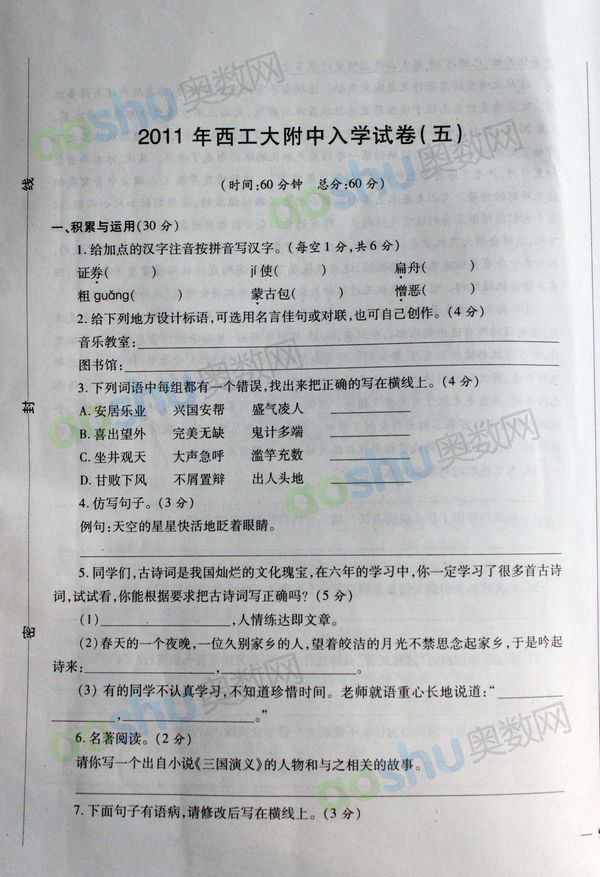 2011 年西工大附中入学试卷(五)
(时间:60分钟 总分:60分)
一、积累与运用(30分)
1. 给加点的汉字注音按拼音写汉字。(每空1分,共6分)
证券( ) jī使( ) 扁舟( )
粗 guǎng( ) 蒙古包( ) 憎恶( )
2. 给下列地方设计标语,可选用名言佳句或对联,也可自己创作。(4分)
音乐教室:
图书馆:
3. 下列词语中每组都有一个错误,找出来把正确的写在横线上。(4分)
A. 安居乐业 兴国安帮 盛气凌人
B. 喜出望外 完美无缺 鬼计多端
C. 坐井观天 大声急呼 滥竽充数
D. 甘败下风 不屑置辩 出人头地
4. 仿写句子。(3分)
例句:天空的星星快活地眨着眼睛。
5. 同学们,古诗词是我国灿烂的文化瑰宝,在六年的学习中,你一定学习了很多首古诗
词,试试看,你能根据要求把古诗词写正确吗?(5分)
(1) ,人情练达即文章。
(2)春天的一个夜晚,一位久别家乡的人,望着皎洁的月光不禁思念起家乡,于是吟起
诗来: , 。
(3) 有的同学不认真学习,不知道珍惜时间。老师就语重心长地说道:“
, 。”
6. 名著阅读。(2分)
请你写一个出自小说《三国演义》的人物和与之相关的故事。
7. 下面句子有语病,请修改后写在横线上。(3分)
线
封
密
aoshu奥数网
aoshu奥数网
aoshu奥数网
aoshu奥数网
aoshu奥数网
aoshu奥数网